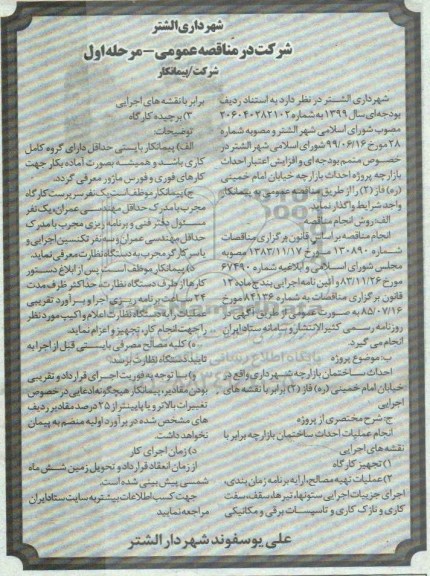 شهرداری الشتر
شرکت در مناقصه عمومی - مرحله اول
شرکت/پیمانکار
شهرداری الشتر در نظر دارد به استناد ردیف
بودجه‌ای سال ۱۳۹۹ به شماره ۳۰۶۰۴۰۳۸۲۱۰۲
مصوب شورای اسلامی شهر الشتر و مصوبه شماره
۲۸ مورخ ۹۹/۰۶/۱۶ شورای اسلامی شهر الشتر در
خصوص متمم بودجه‌ای و افزایش اعتبار احداث
بازارچه پروژه احداث بازارچه خیابان امام خمینی
(ره) فاز (۲) را از طریق مناقصه عمومی به پیمانکار
واجد شرایط واگذار نماید.
الف: روش انجام مناقصه
انجام مناقصه بر اساس قانون برگزاری مناقصات
شماره ۱۳۰۸۹۰ مورخ ۱۳۸۳/۱۱/۱۷ مصوبه
مجلس شورای اسلامی و ابلاغیه شماره ۶۷۴۹۰
مورخ ۸۳/۱۱/۲۶ و آئین نامه اجرایی بند ج ماده ۱۲
قانون برگزاری مناقصات به شماره ۸۴۱۳۶ مورخ
۸۵/۰۷/۱۶ به صورت عمومی از طریق آگهی در
روزنامه رسمی کثیرالانتشار و سامانه ستاد ایران
انجام می گیرد.
ب: موضوع پروژه
احداث ساختمان بازارچه شهرداری واقع در
خیابان امام خمینی (ره) فاز (۲) برابر با نقشه های
اجرایی
ج: شرح مختصری از پروژه
انجام عملیات احداث ساختمان بازارچه برابر با
نقشه های اجرایی
۱) تجهیز کارگاه
۲) عملیات تهیه مصالح، ارایه برنامه زمان بندی،
اجرای جزییات اجرایی ستونها، تیرها، سقف، سفت
کاری و نازک کاری و تاسیسات برقی و مکانیکی
برابر با نقشه های اجرایی
۳) برچیده کارگاه
توضیحات
الف) پیمانکار بایستی حداقل دارای گروه کامل
کاری باشد و همیشه بصورت آماده بکار جهت
کارهای فوری و فورس ماژور معرفی گردد.
ج) پیمانکار موظف است یک نفر سرپرست کارگاه
مجرب با مدرک حداقل مهندسی عمران، یک نفر
مسئول دفتر فنی و برنامه ریزی مجرب با مدرک
حداقل مهندسی عمران و سه نفر تکنسین اجرایی و
یا سرکارگر مجرب به دستگاه نظارت معرفی نماید.
د) پیمانکار موظف است پس از ابلاغ دستور
کارها از طرف دستگاه نظارت، حداکثر ظرف مدت
۲۴ ساعت برنامه ریزی اجرا و برآورد تقریبی
عملیات را به دستگاه نظارت اعلام و اکیپ مورد نظر
را جهت انجام کار، تجهیز و اعزام نماید.
ه) کلیه مصالح مصرفی بایستی قبل از اجرا به
تایید دستگاه نظارت برسد.
و) با توجه به فوریت اجرای قرارداد و تقریبی
بودن مقادیر، پیمانکار هیچگونه ادعایی در خصوص
تغییرات بالاتر و یا پایینتر از ۲۵ درصد مقادیر ردیف
های مشخص شده در برآورد اولیه منضم به پیمان
نخواهد داشت.
د) زمان اجرای کار
از زمان انعقاد قرارداد و تحویل زمین شش ماه
شمسی پیش بینی شده است.
جهت کسب اطلاعات بیشتر به سایت ستاد ایران
مراجعه نمایید
علی یوسفوند شهردار الشتر